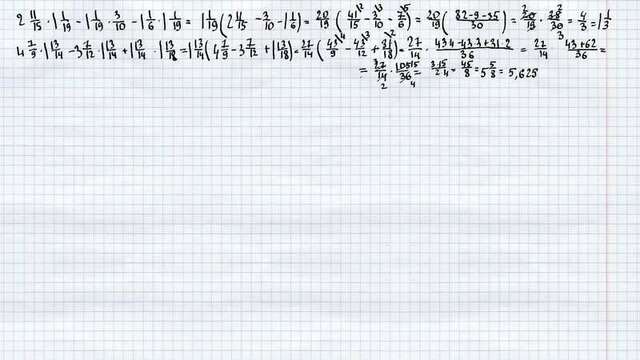 2 11/15 · 1 1/19 - 1 1/19 · 3/10 - 1 1/6 · 1 1/19 = 1 1/19 (2 11/15 - 3/10 - 1 1/6) = 20/19 (41/15 - 3/10 - 7/6) = 20/19 (82-9-35/30) = 20/19 · 38/30 = 4/3 = 1 1/3
4 7/9 · 1 13/14 - 3 7/12 · 1 13/14 + 1 13/14 · 1 13/18 = 1 13/14 (4 7/9 - 3 7/12 + 1 13/18) = 27/14 (43/9 - 43/12 + 31/18) = 27/14 · 43·4-43·3+31·2/36 = 27/14 43+62/36 =
= 27/14 · 105/36 = 3·15/2·4 = 45/8 = 5 5/8 = 5,625